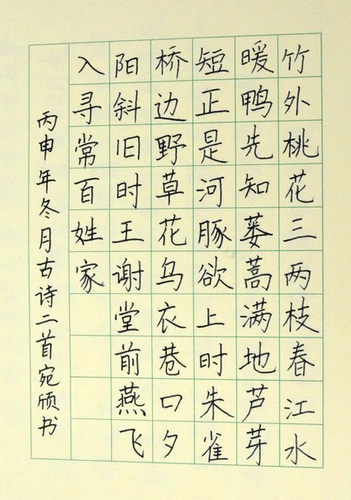 竹外桃花三两枝春江水
暖鸭先知蒌蒿满地芦芽
短正是河豚欲上时朱雀
桥边野草花乌衣巷口夕
阳斜旧时王谢堂前燕飞
入寻常百姓家
丙申年冬月古诗二首宛颀书